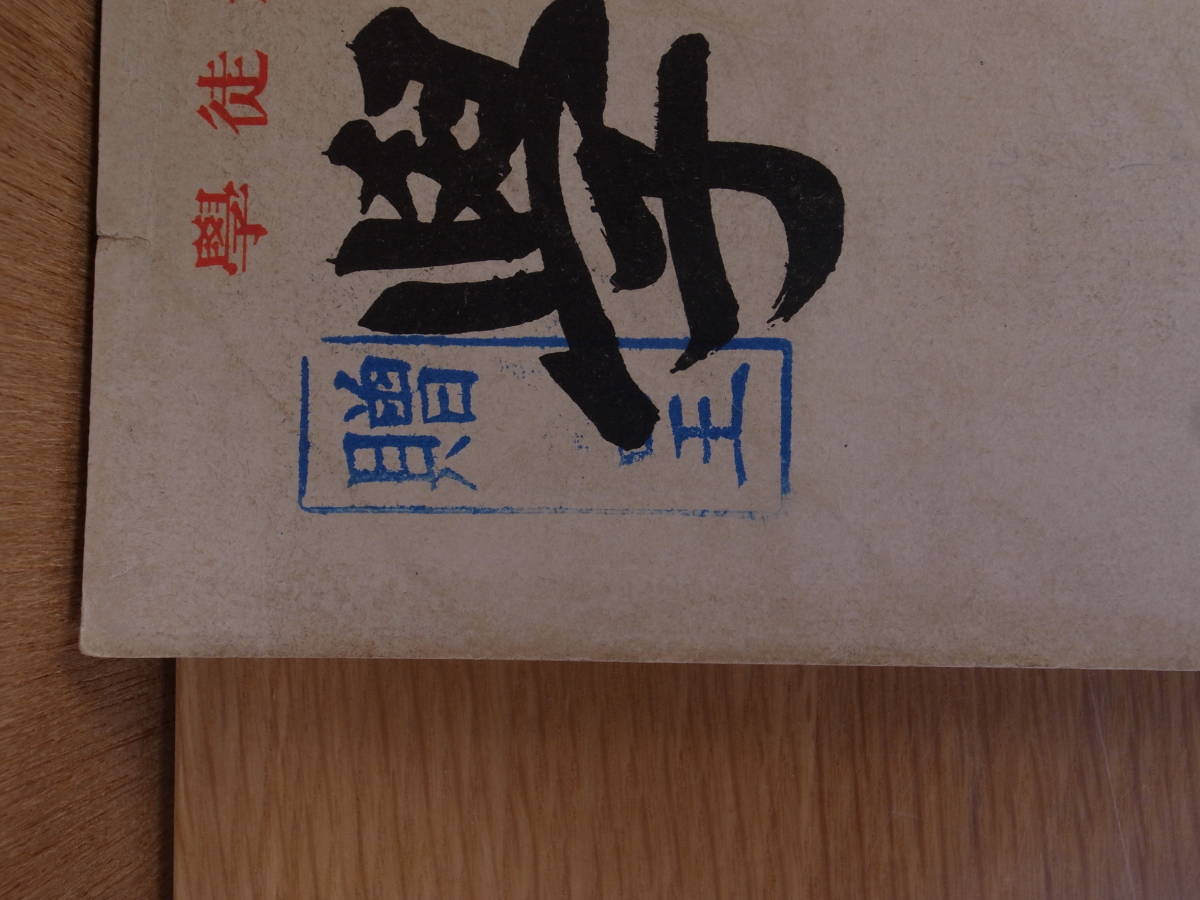 學徒
學
贈呈